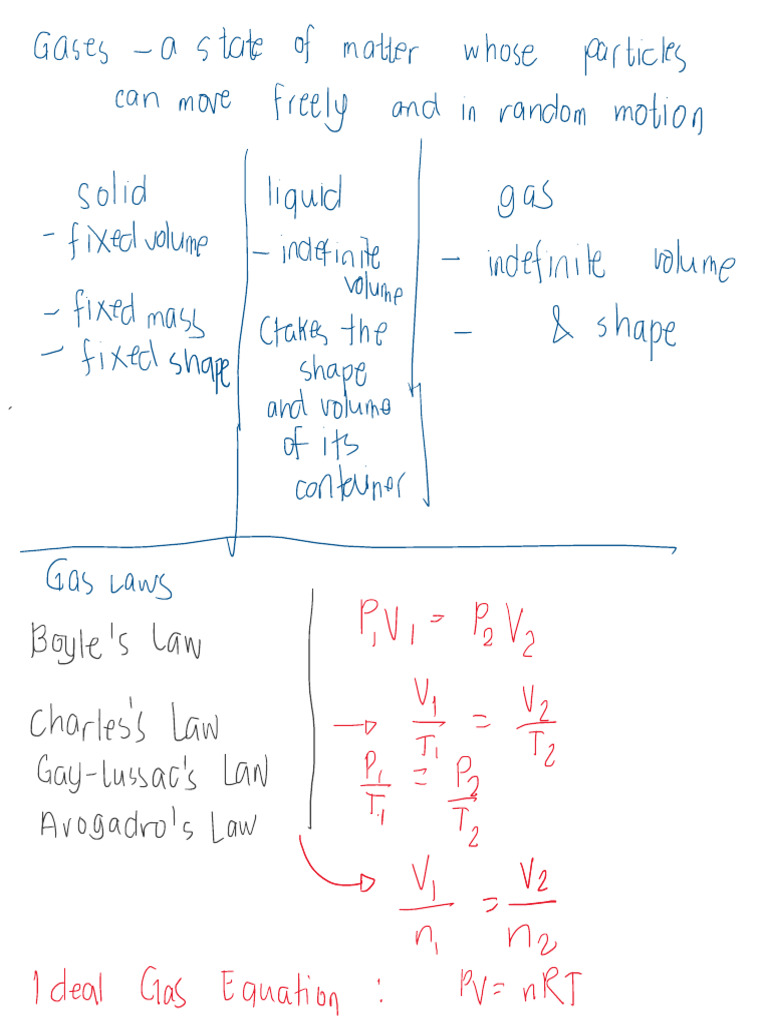 Gases - a state of matter whose particles
can move freely and in random motion
solid
- fixed volume
- fixed mass
- fixed shape
liquid
- indefinite
volume
(takes the
shape
and volume
of its
container
gas
- indefinite volume
- & shape
Gas Laws
Boyle's Law
P₁V₁ = P₂V₂
Charles's Law
→ V₁/T₁ = V₂/T₂
Gay-Lussac's Law
P₁/T₁ = P₂/T₂
Avogadro's Law
→ V₁/n₁ = V₂/n₂
Ideal Gas Equation : PV = nRT